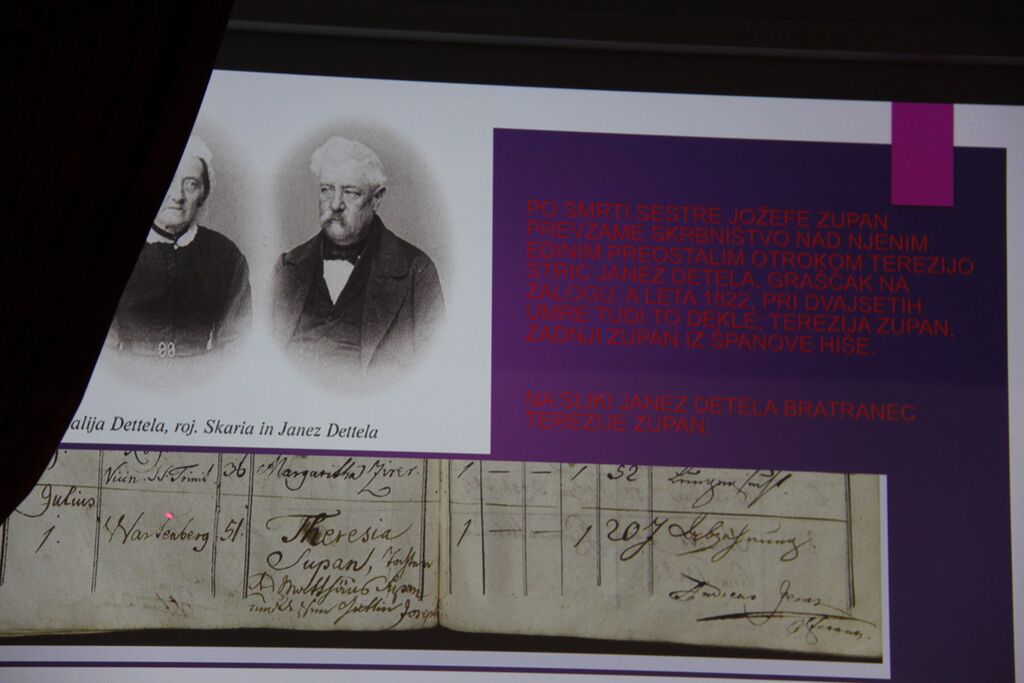 PO SMRTI SESTRE JOŽEFE ZUPAN
PREVZAME SKRBNIŠTVO NAD NJENIM
EDINIM PREOSTALIM OTROKOM TEREZIJO
STRIC JANEZ DETELA, GRAŠČAK NA
ZALOGU, A LETA 1822, PRI DVAJSETIH
UMRE TUDI TO DEKLE; TEREZIJA ZUPAN,
ZADNJI ZUPAN IZ ŠPANOVE HIŠE.
NA SLIKI JANEZ DETELA BRATRANEC
TEREZIJE ZUPAN.
alija Dettela, roj. Skaria in Janez Dettela
36 Margaritha 1 — — 1 52
Julius
1. Wartenberg 51. Theresia 1 — — 1 20J Abzehrung
Supan,